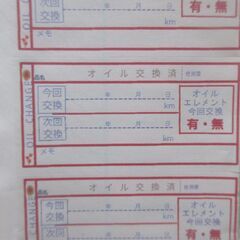 次回
交換
年 月 日
km
有・無
メモ
OIL CHANGE
品名
オイル交換済
使用量
今回
交換
年 月 日
km
オイル
エレメント
今回交換
次回
交換
年 月 日
km
有・無
メモ
OIL CHANGE
品名
オイル交換済
使用量
今回
交換
年 月 日
km
オイル
エレメント
今回交換
次回
年 月 日
有・無